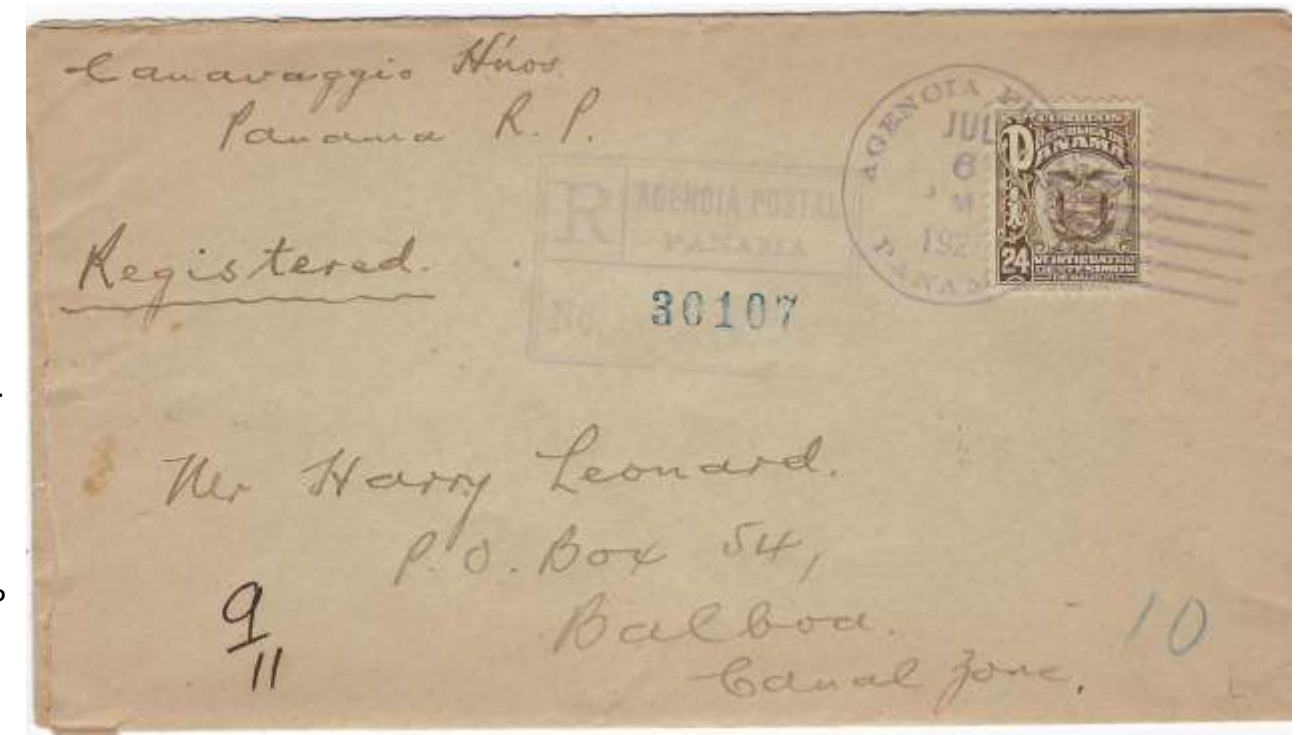 Canavaggio Hnos
Panama R. P.
Registered.
R AGENCIA POSTAL
PANAMA
No.
30107
AGENCIA
JUL
6
M
192
PANAMA
PANAMA
24
VEINTICUATRO
CENTESIMOS
Mr Harry Leonard.
P.O. Box 54,
Balboa.
Canal Zone.
9
11
10